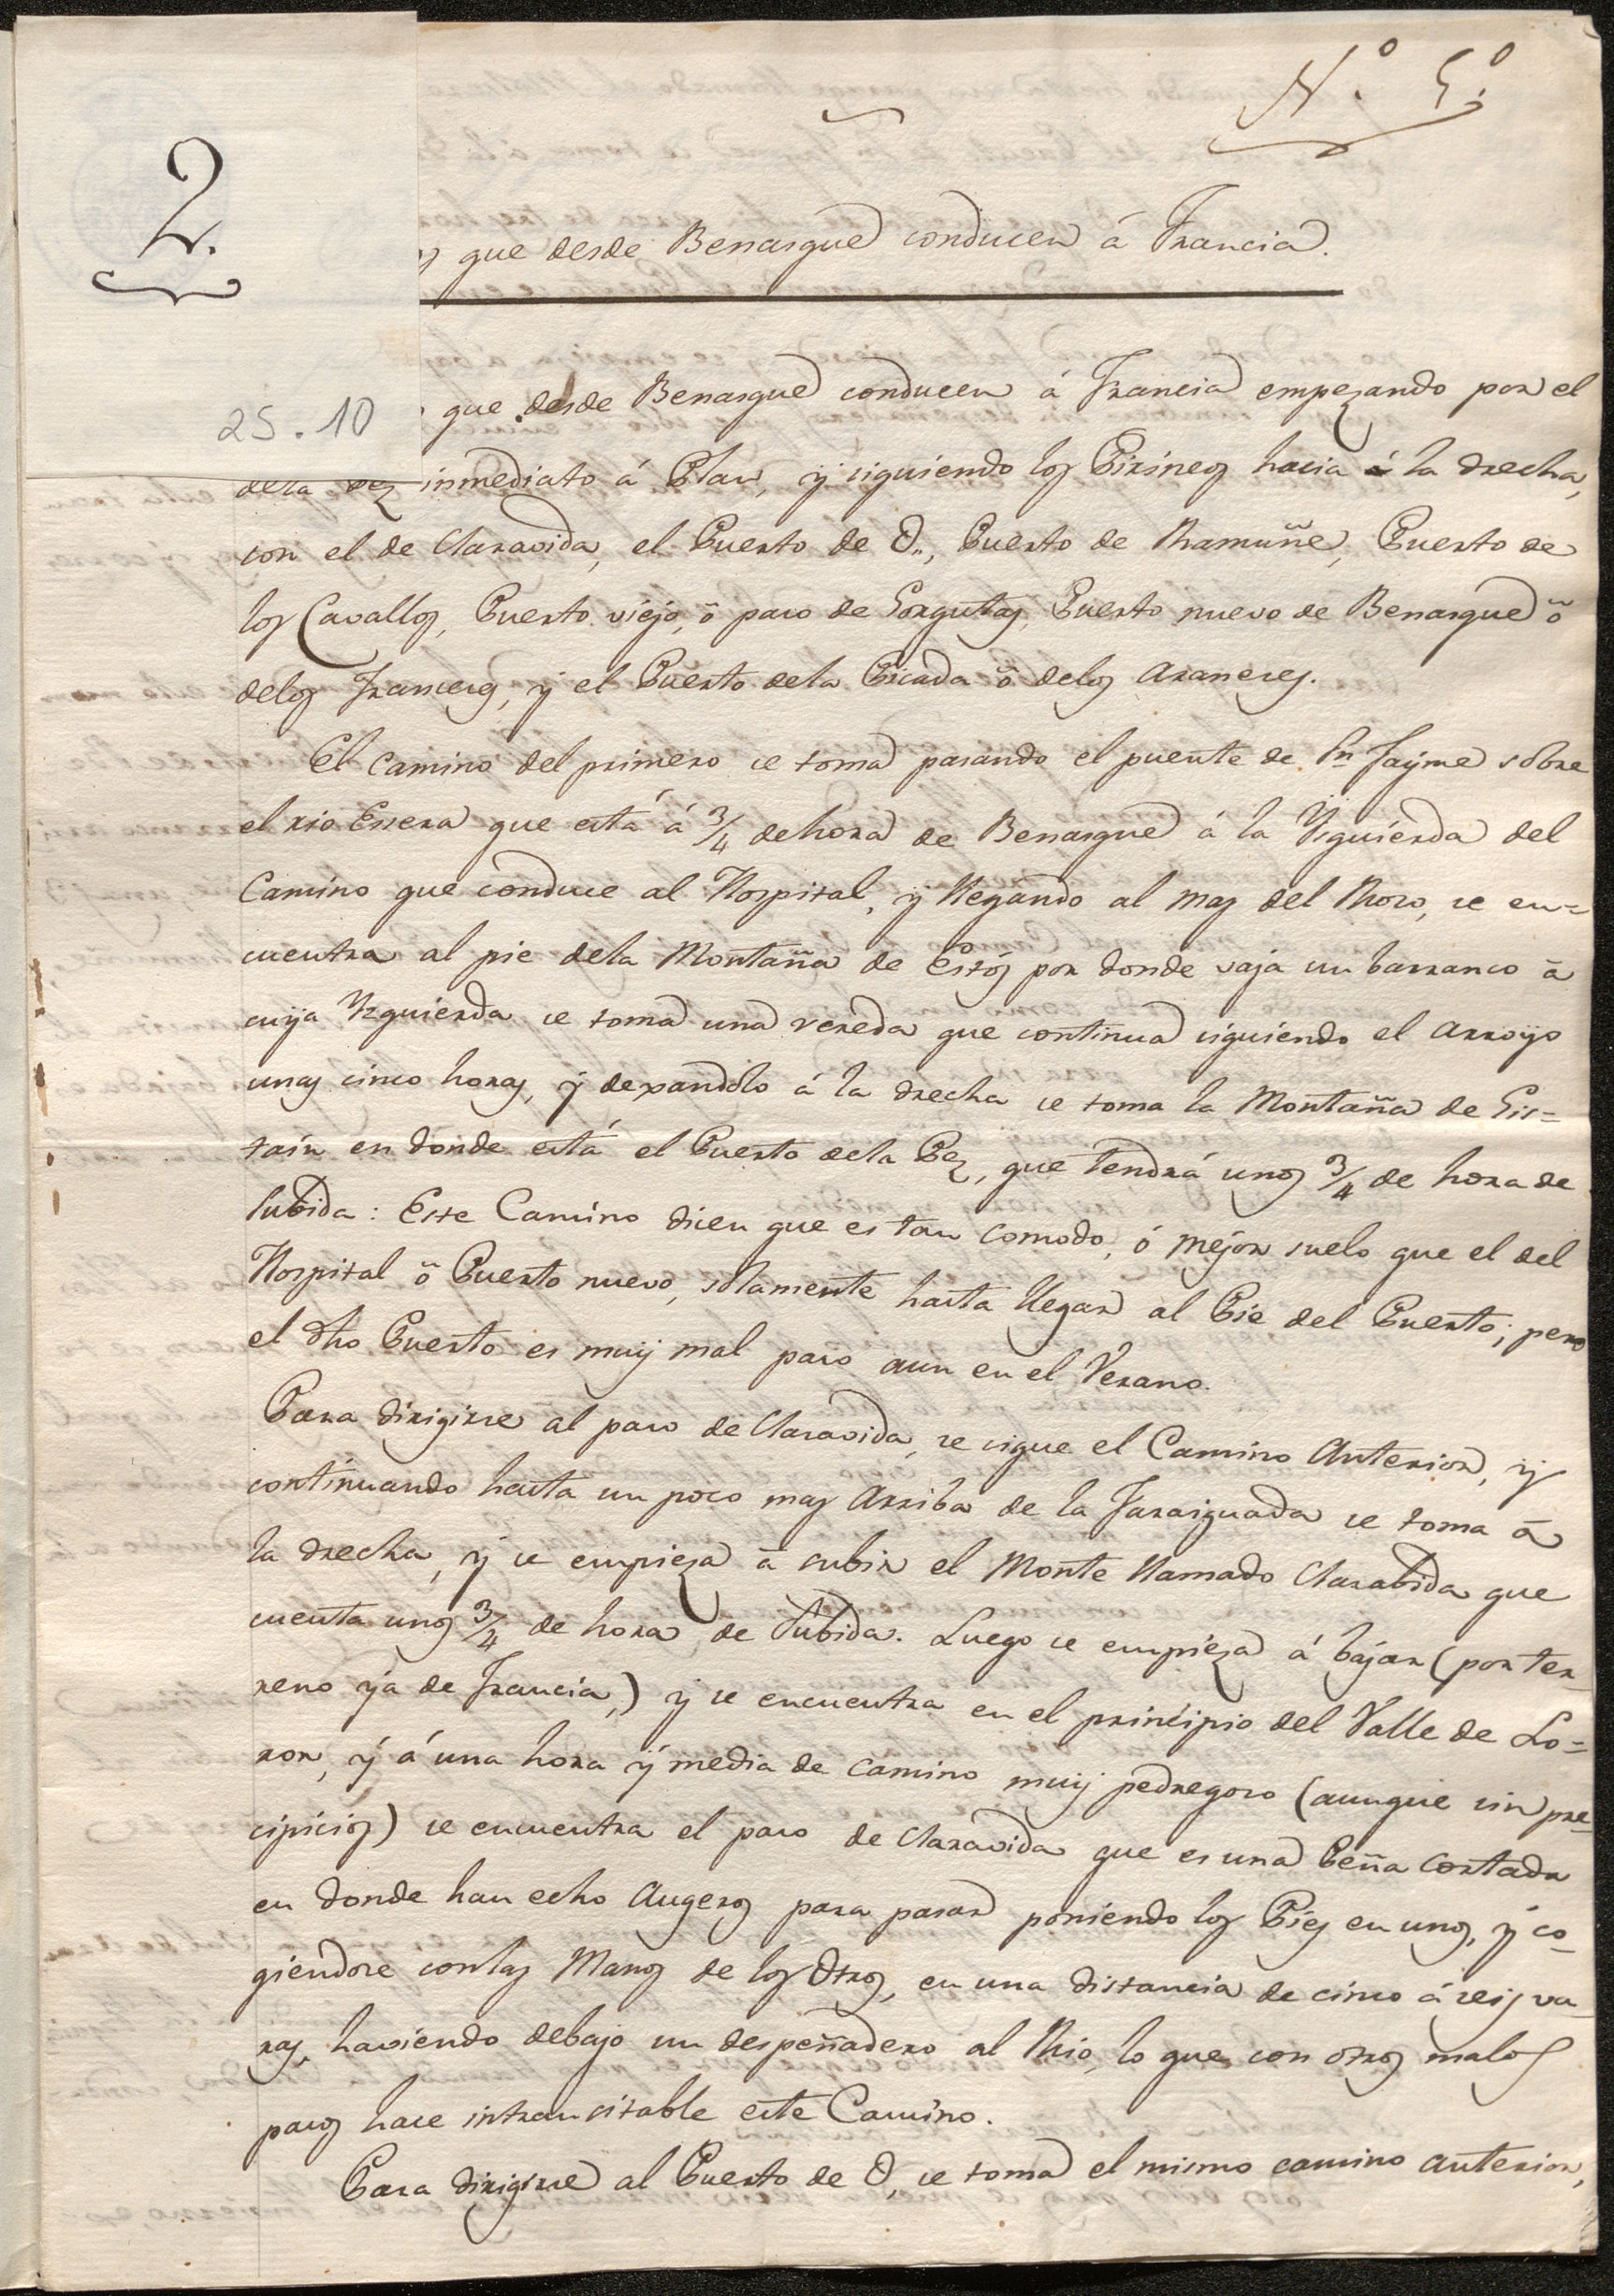 Nº. 5º.
2.
25.10
que desde Benasque conducen á Francia.
que desde Benasque conducen á Francia empezando por el
dela Pez inmediato á Plan, y siguiendo los Pirineos hacia á la drecha,
son el de Claravida, el Puerto de O.., Puerto de Ramuñe, Puerto de
los Cavallos, Puerto viejo, ô paso de Gorgutas, Puerto nuevo de Benasque ô
delos Franceses, y el Puerto dela Picada ô delos Araneses.
El Camino del primero se toma pasando el puente de Sn Jayme sobre
el rio Essera que está á 3/4 de hora de Benasque á la Yzquierda del
Camino que conduce al Hospital, y llegando al mas del Moro, se en=
cuentra al pie dela Montaña de Estós por donde vaja un barranco â
cuya Yzquierda se toma una vereda que continua siguiendo el arroyo
unas cinco horas, y dexandolo á la drecha se toma la Montaña de Gis=
tain en donde está el Puerto dela Pez, que tendrá unos 3/4 de hora de
Subida: Este Camino dicen que es tan comodo, ó mejor suelo que el del
Hospital ô Puerto nuevo, solamente hasta llegar al Pie del Puerto; pero
el dho Puerto es muy mal paso aun en el Verano.
Para dirigirse al paso de Claravida, se sigue el Camino Anterior, y
continuando hasta un poco mas Arriba de la Faraiguada se toma â
la drecha, y se empieza â subir el Monte llamado Clarabida que
cuenta unos 3/4 de hora de Subida. Luego se empieza á bájar (por ter=
reno yá de Francia,) y se encuentra en el principio del Valle de Lo=
ron, y á una hora y media de camino muy pedregoso (aunque sin pre=
cipicios) se encuentra el paso de Claravida que es una Peña Cortada
en donde han echo Augeros para pasar poniendo los Pies en unos, y co=
giendose con las Manos de los Otros, en una distancia de cinco á seis va=
ras, haviendo debajo un despeñadero al Rio, lo que con otros malos
pasos hace intransitable este Camino.
Para dirigirse al Puerto de O, se toma el mismo camino anterior,